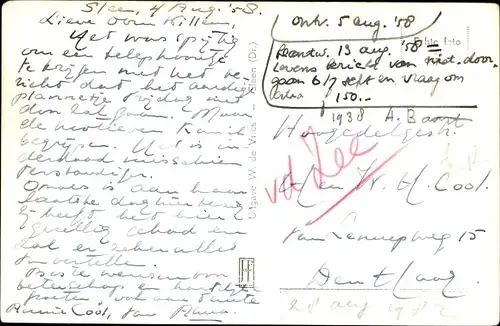 Sleen, 4 Aug. '58.
Lieve oom Willem,
Het was spijtig
om een telephoontje
te krijgen met het be-
richt dat het aardige
plannetje Vrijdag niet
door zal gaan. Maar
de motieven kan ik
begrijpen. Het is in-
derdaad misschien
verstandiger.
Omoes is aan haar
laatste dag hier bezig
heeft het hier
gezellig gehad en
zal er zeker alles
van vertellen.
Beste wensen voor
beterschap en hartelijke
groeten, ook aan tante
Cool, van
Uitgave W. de Vries — Sleen (Dr.)
Echte Foto
ontv. 5 aug. '58
beantw. 13 aug. '58
tevens bericht van niet-door-
gaan 6/7 sept en vraag om
150.-
1938 A. B
v.d. Zee
Hooggedelgestr.
Heer W. H. Cool.
van Lennepweg 15
Den Haag
28 aug 1982